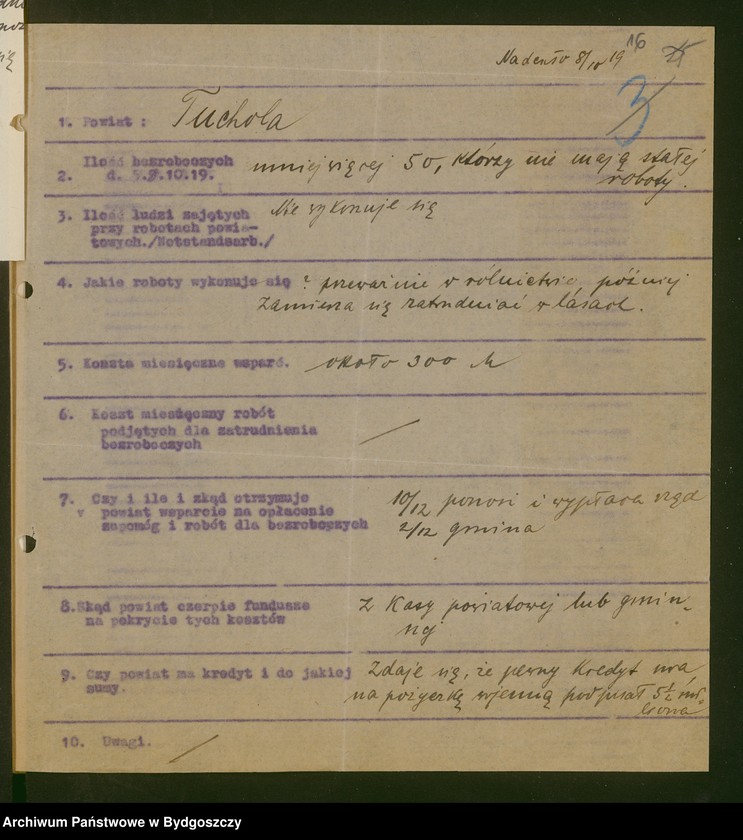 Nadeszło 8/10 19
16
3
1. Powiat : Tuchola
2. Ilość bezroboczych
d. 10.19.
mniej więcej 50, którzy nie mają stałej
roboty.
3. Ilość ludzi zajętych
przy robotach powia-
towych./Notstandsarb./
Nie wykonuje się
4. Jakie roboty wykonuje się ? przeważnie w rólnictwie, później
zamierza się zatrudniać w lasach.
5. Koszta miesięczne wsparć. około 300 M
6. Koszt miesięczny robót
podjętych dla zatrudnienia
bezroboczych
7. Czy i ile i zkąd otrzymuje
powiat wsparcie na opłacenie
zapomóg i robót dla bezroboczych
10/12 ponosi i wypłaca rząd
2/12 gmina
8. Skąd powiat czerpie fundusze
na pokrycie tych kosztów
z Kasy powiatowej lub gmin-
nej
9. Czy powiat ma kredyt i do jakiej
sumy.
Zdaje się, że pewny kredyt ma
na pożyczkę wojenną podpisał 5½ mil-
liona
10. Uwagi.
Archiwum Państwowe w Bydgoszczy